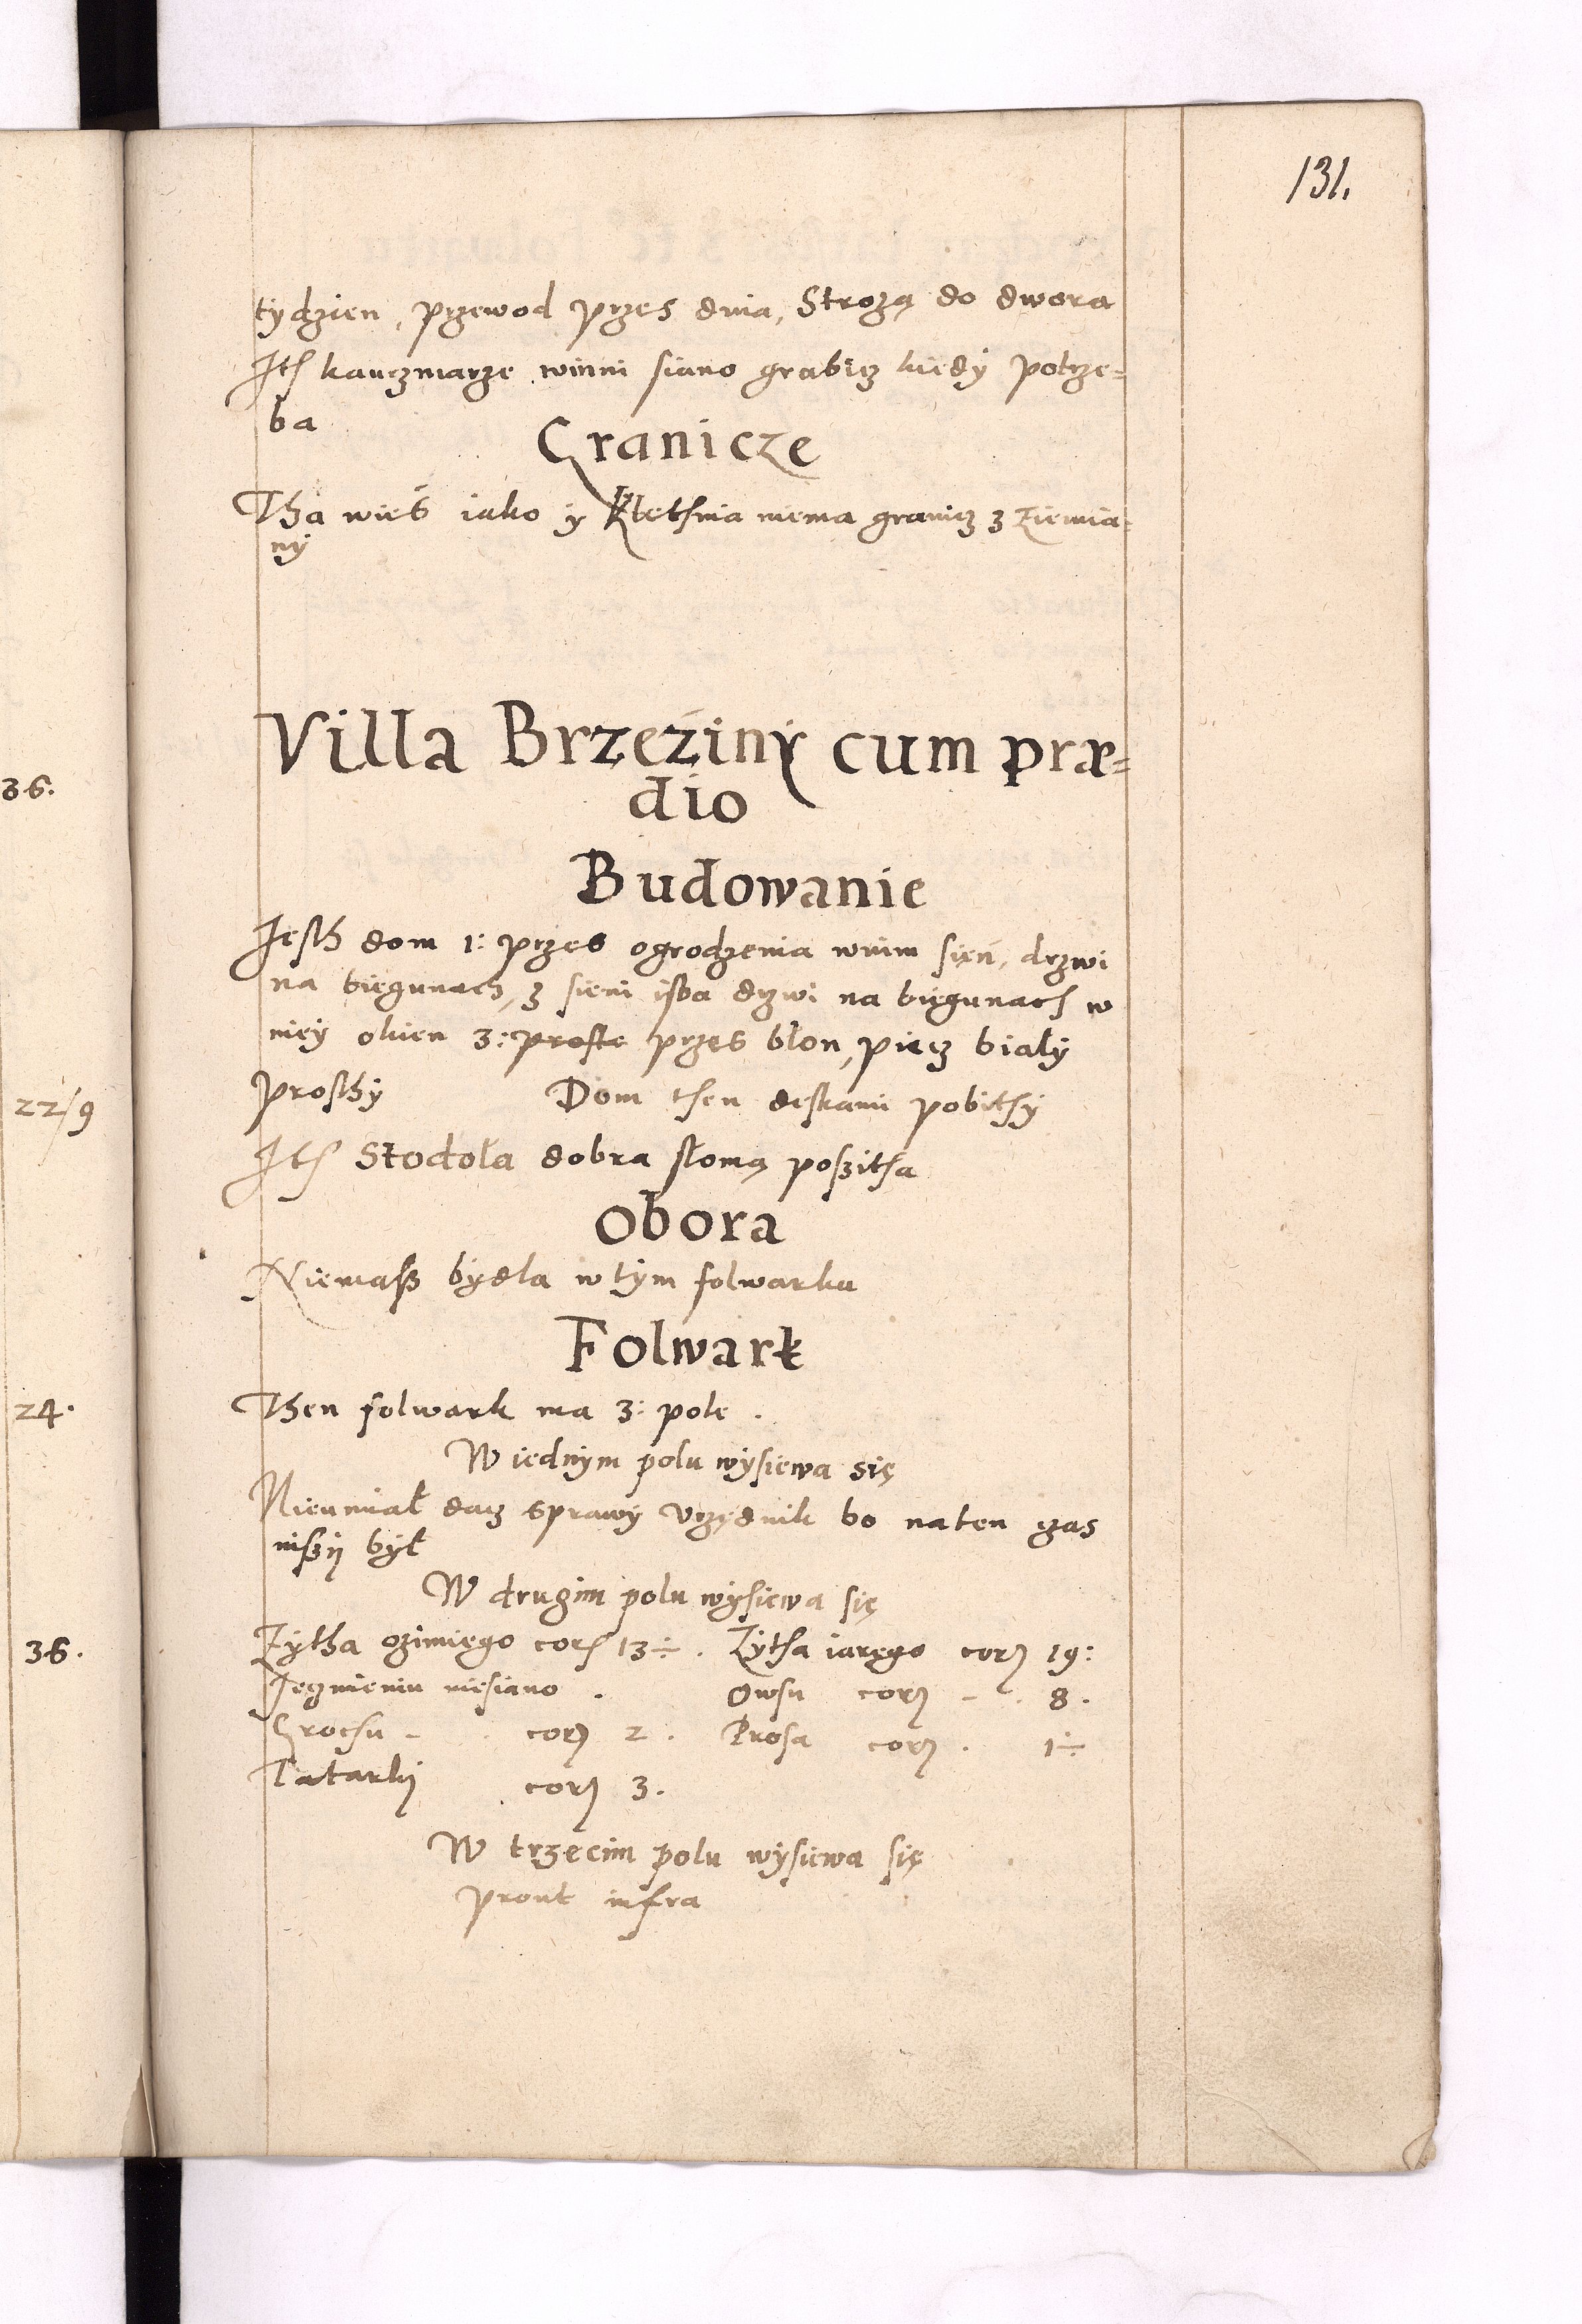 131.
tydzien, przewod przes dnia, Strożą do dwora
Ith kauczmarze winni siano grabicz kiedy potrze=
ba
Granicze
Tha wieś iako y Klethnia niema granicz z ziemia=
ny
Villa Brzeźiny cum præ=
dio
Budowanie
Jesth dom 1: przes ogrodzenia wnim sień, drzwi
na biegunach, z sieni isba drzwi na biegunach w
niey okien 3: proste przes błon, piecz biały
prosthy Dom then deskami pobithy
Ith Stodoła dobra słomą poszitha
Obora
Niemasz bydła w tym folwarku
Folwark
Then folwark ma 3: pole.
W iednym polu wysiewa się
Nieumiał dacz sprawy Vrzędnik bo naten czas
niszy był
W drugim polu wysiewa się
Zytha ozimiego corz 13÷. Zytha iarego corz 19:
Jęczmieniu niesiano. Owsu corz - . 8.
Grochu - . corz 2. Prosa corz . 1÷
Tatarky corz 3.
W trzecim polu wysiewa się
prout infra
36.
22/9
24.
36.